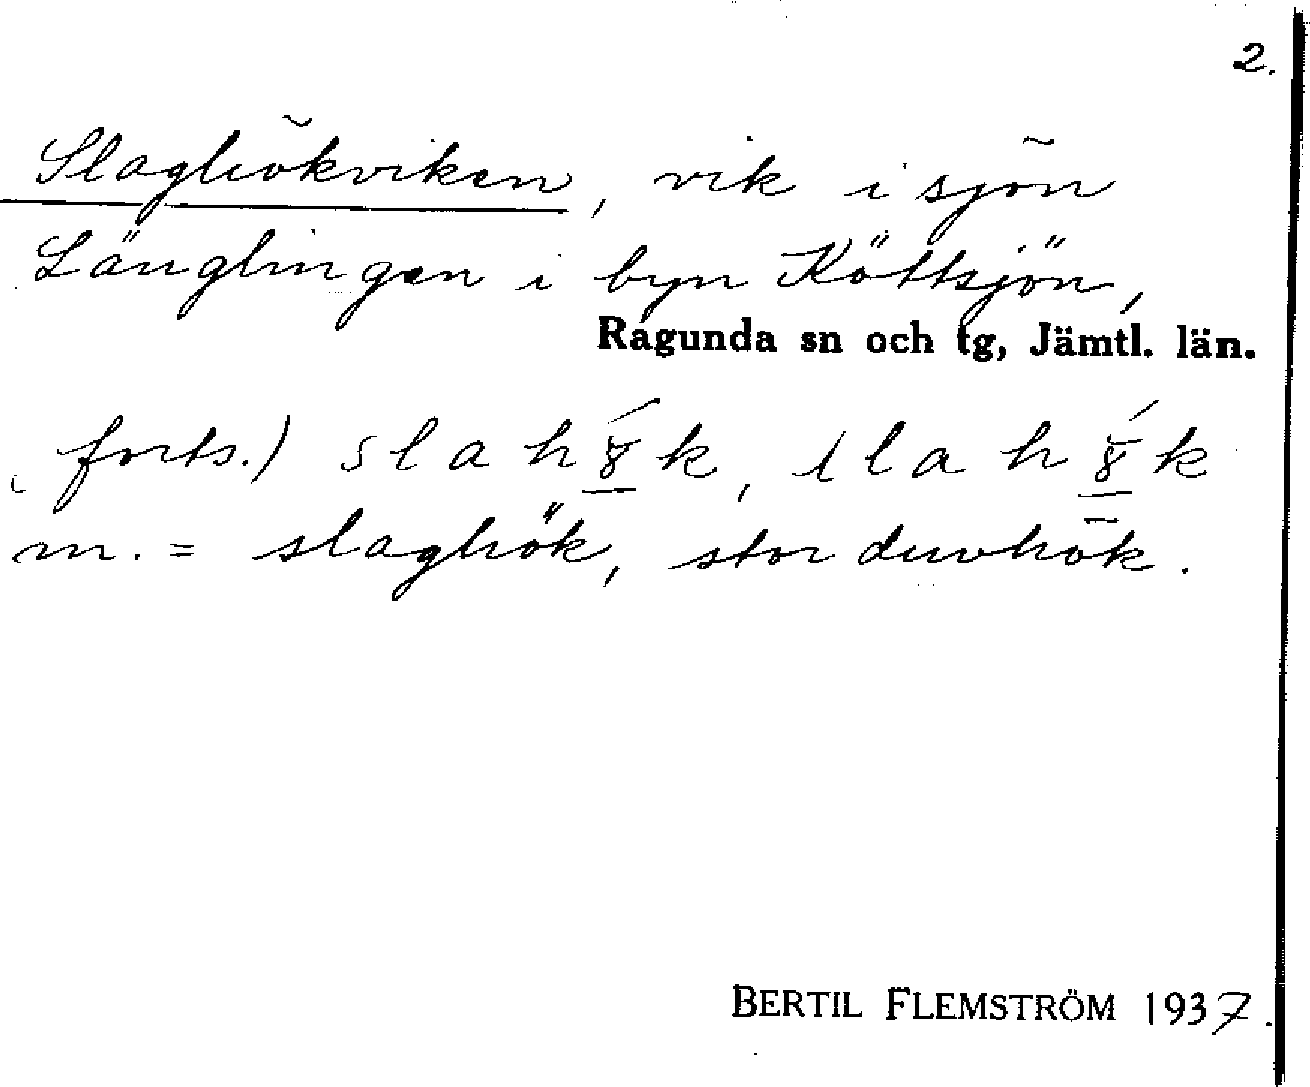 2.
Slaghökviken, vik i sjön
Länglingen i byn Köttsjön,
Ragunda sn och tg, Jämtl. län.
(forts.) slahɤ́k, slahɤ́k
m. = slaghök, stor duvhök.
BERTIL FLEMSTRÖM 1937.